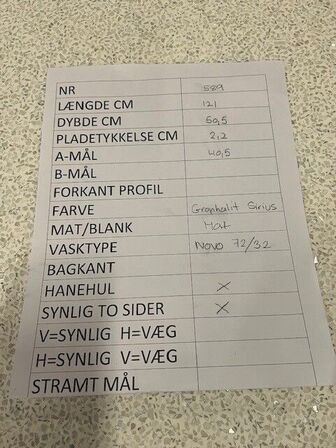 NR 589
LÆNGDE CM 121
DYBDE CM 50,5
PLADETYKKELSE CM 2,2
A-MÅL 40,5
B-MÅL
FORKANT PROFIL
FARVE Graphalit Sirius
MAT/BLANK Mat
VASKTYPE Novo 72/32
BAGKANT
HANEHUL X
SYNLIG TO SIDER X
V=SYNLIG H=VÆG
H=SYNLIG V=VÆG
STRAMT MÅL